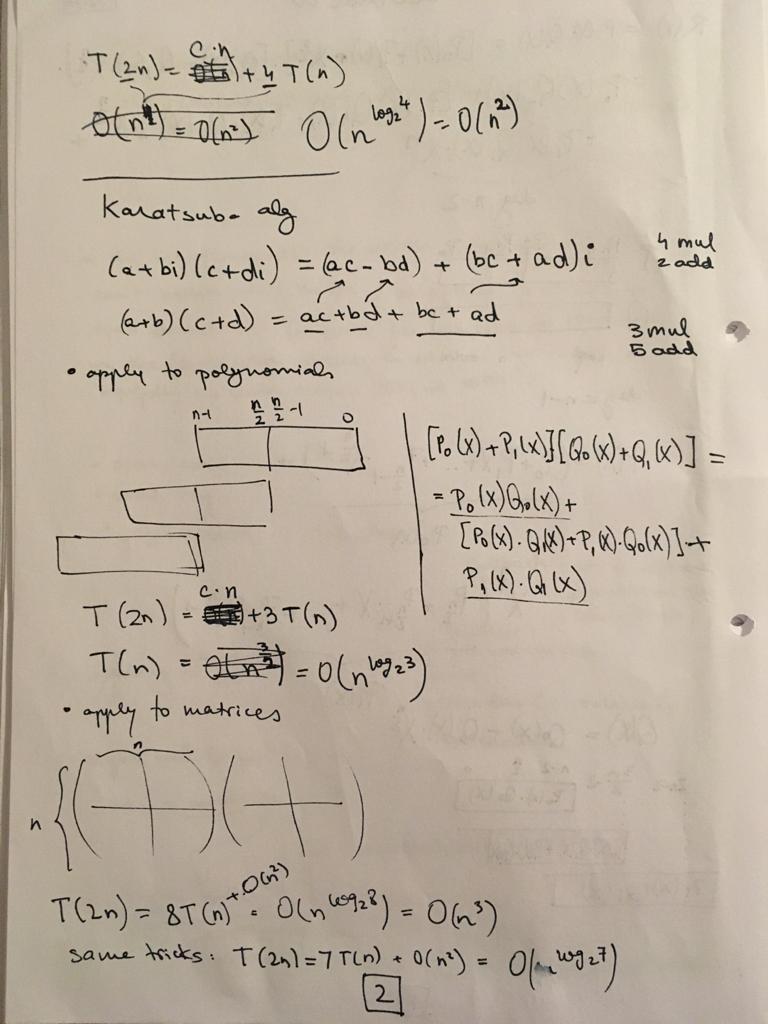 T(2n) = c·n + 4 T(n)
O(n²) = O(n²) O(n^log₂4) = O(n²)
Karatsub. alg
(a+bi)(c+di) = (ac - bd) + (bc + ad)i
4 mul
2 add
(a+b)(c+d) = ac + bd + bc + ad
3 mul
5 add
• apply to polynomials
n-1 n/2 n/2 -1 0
[P₀(x)+P₁(x)][Q₀(x)+Q₁(x)] =
= P₀(x)Q₀(x) +
[P₀(x)·Q₁(x)+P₁(x)·Q₀(x)] +
P₁(x)·Q₁(x)
T(2n) = c·n + 3T(n)
T(n) = O(n^3/2) = O(n^log₂3)
• apply to matrices
n
n
T(2n) = 8T(n) + O(n²) = O(n^log₂8) = O(n³)
same tricks: T(2n) = 7T(n) + O(n²) = O(n^log₂7)
2